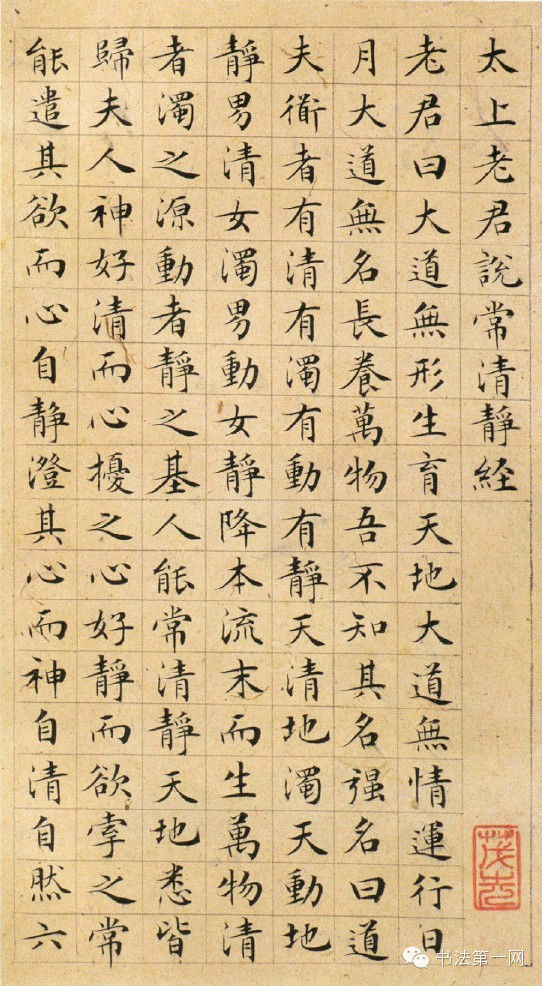 太上老君說常清靜経
老君曰大道無形生育天地大道無情運行日
月大道無名長養萬物吾不知其名强名曰道
夫衜者有清有濁有動有靜天清地濁天動地
靜男清女濁男動女靜降本流末而生萬物清
者濁之源動者靜之基人能常清靜天地悉皆
歸夫人神好清而心擾之心好靜而欲牽之常
能遣其欲而心自静澄其心而神自清自然六
书法第一网